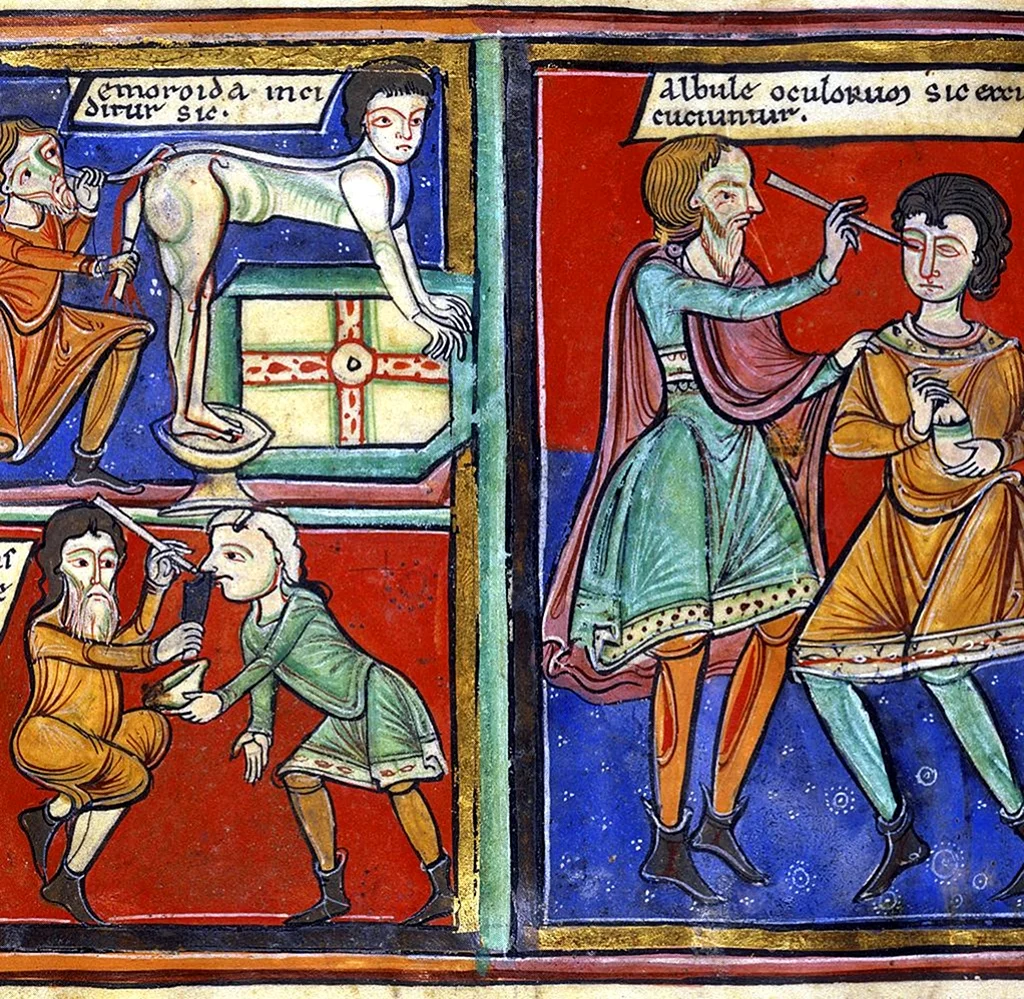 emoroida inci
ditur sic.
albule oculorum sic excu
cuciuntur.